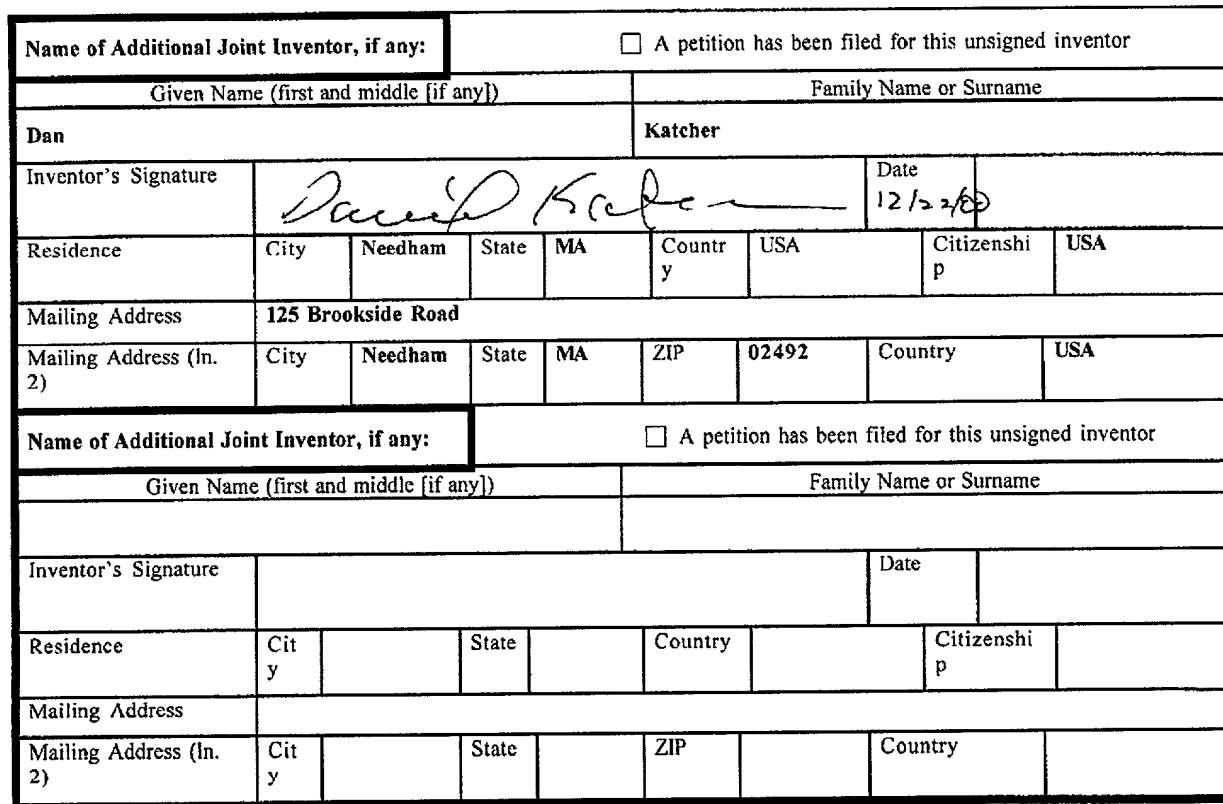 Name of Additional Joint Inventor, if any: ☐ A petition has been filed for this unsigned inventor
Given Name (first and middle [if any]) Family Name or Surname
Dan Katcher
Inventor's Signature Date
12/22/00
Residence City Needham State MA Countr USA Citizenshi USA
y p
Mailing Address 125 Brookside Road
Mailing Address (ln. City Needham State MA ZIP 02492 Country USA
2)
Name of Additional Joint Inventor, if any: ☐ A petition has been filed for this unsigned inventor
Given Name (first and middle [if any]) Family Name or Surname
Inventor's Signature Date
Residence Cit State Country Citizenshi
y p
Mailing Address
Mailing Address (ln. Cit State ZIP Country
2) y